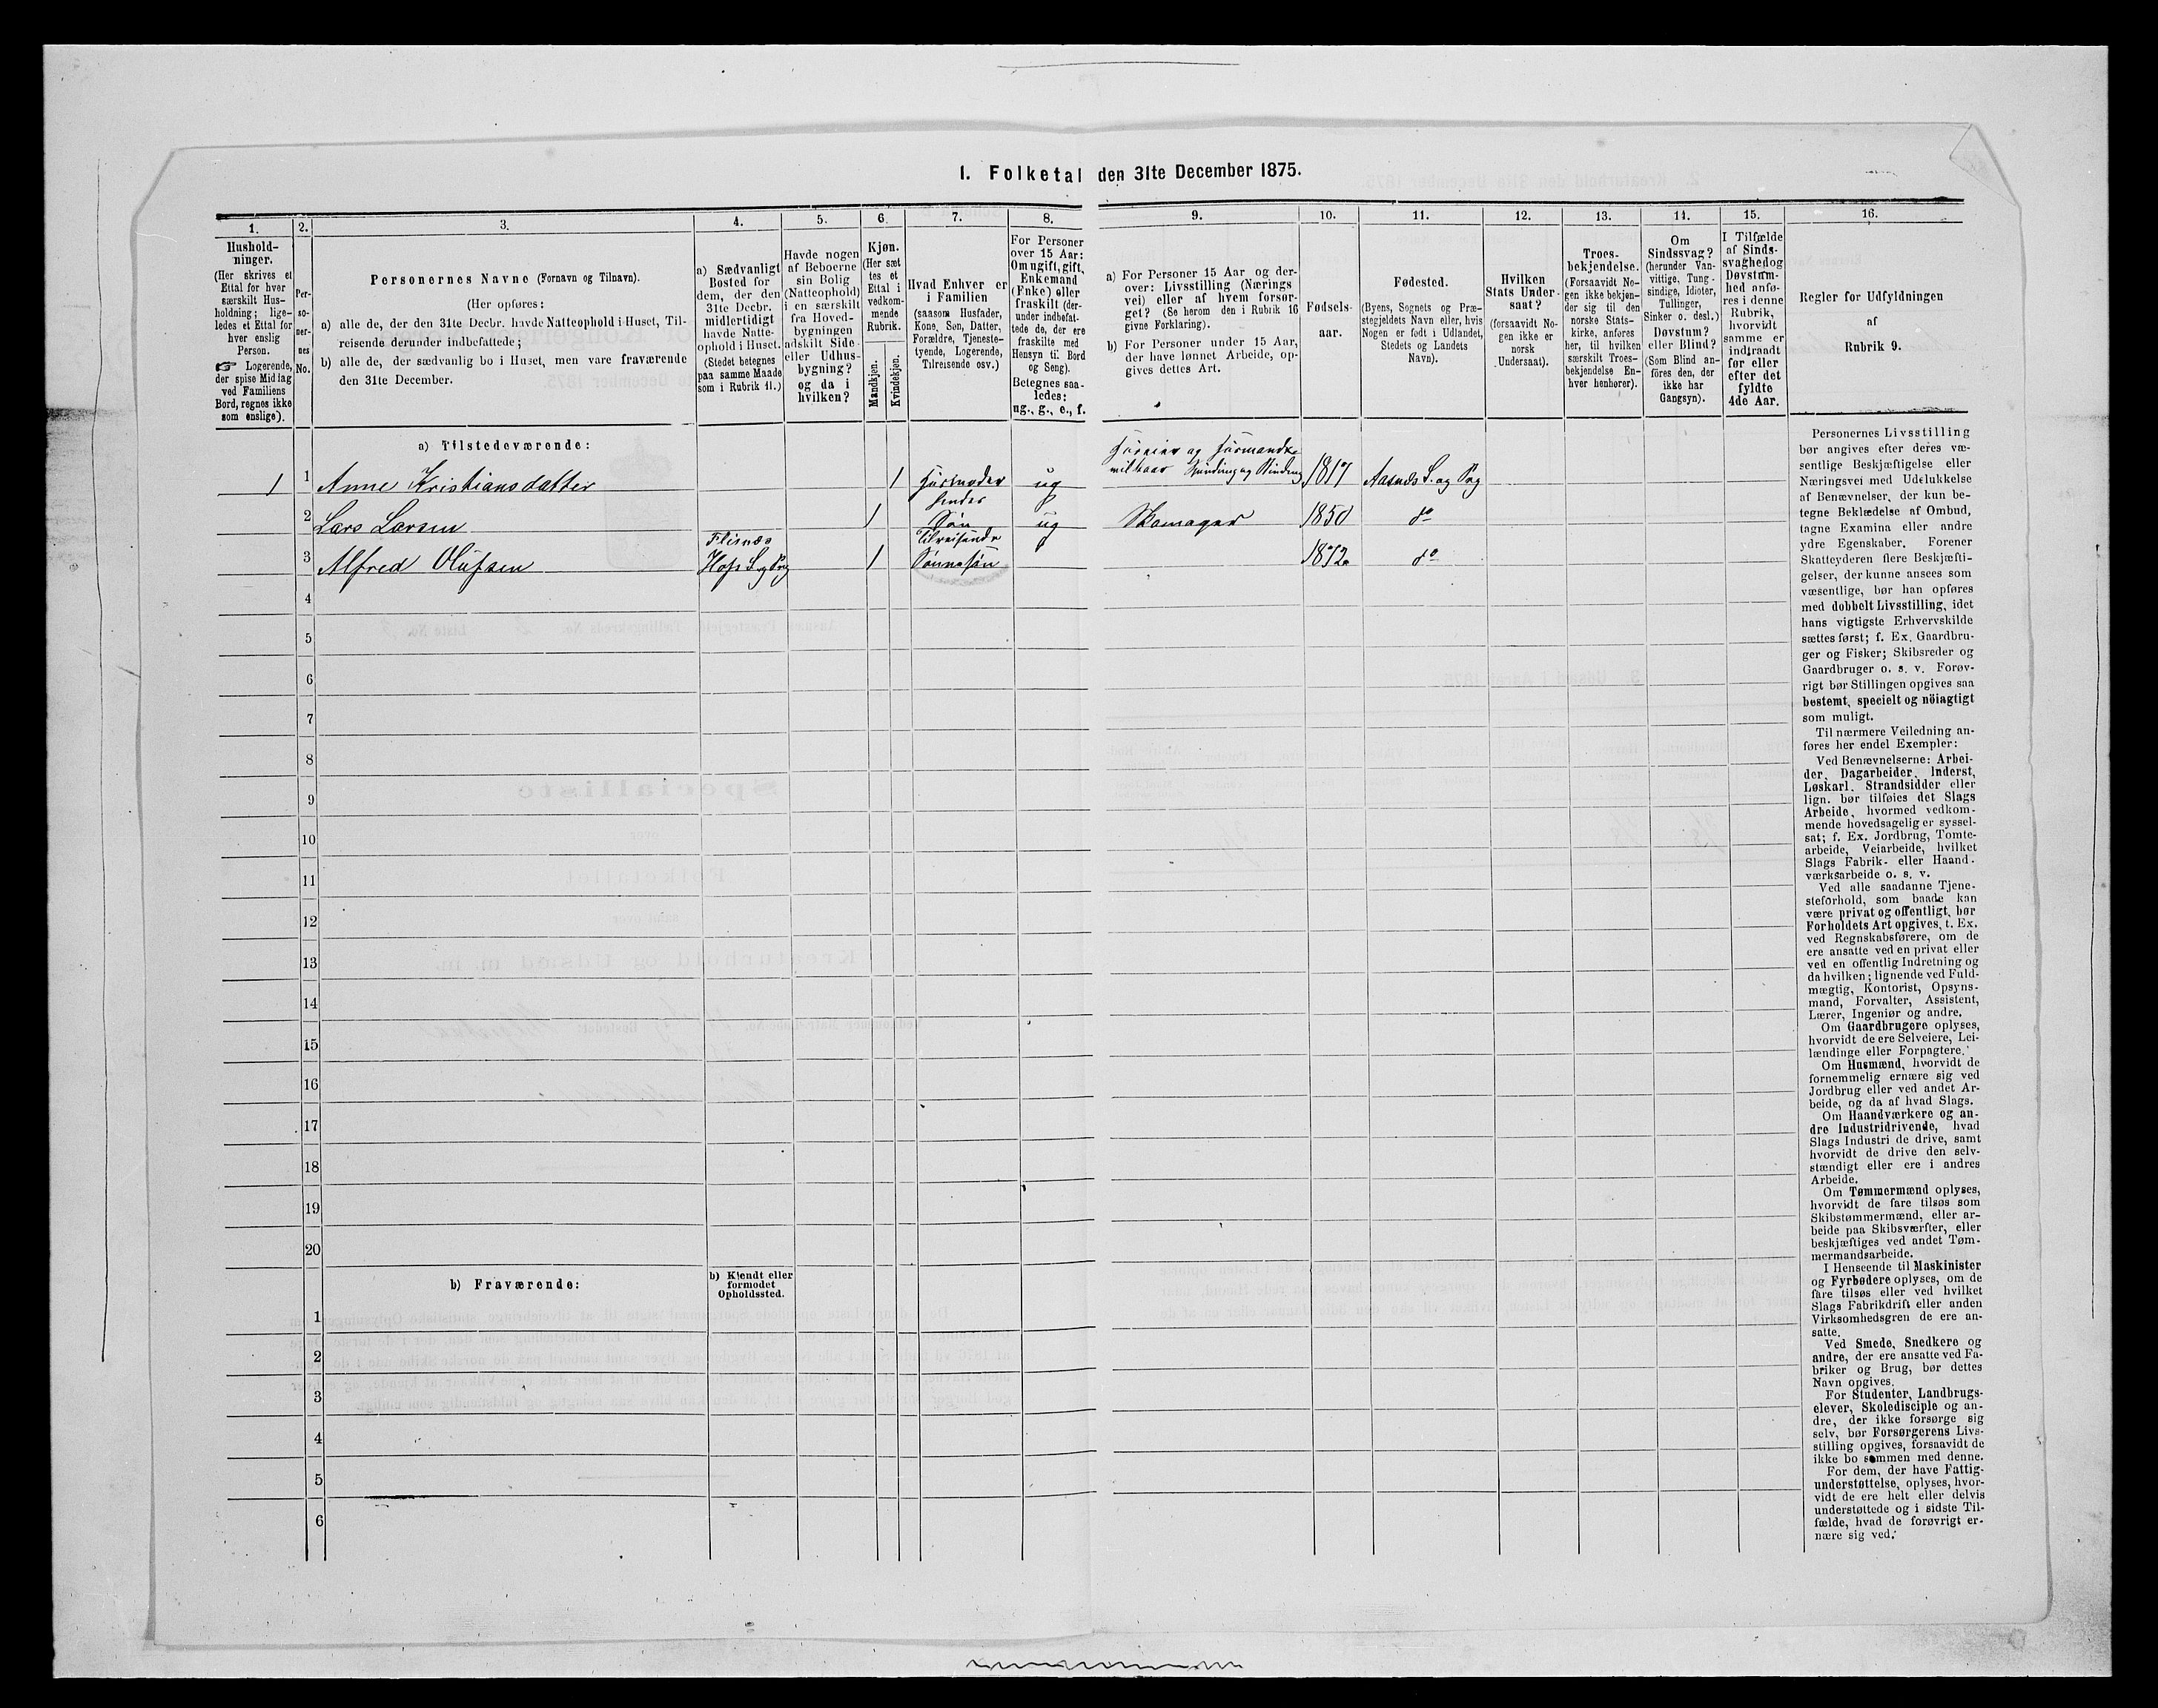 1. Folketal den 31te December 1875.
1.
2.
3.
4.
5.
6.
7.
8.
9.
10.
11.
12.
13.
14.
15.
16.
Hushold-
ninger.
(Her skrives et
Ettal for hver
særskilt Hus-
holdning; lige-
ledes et Ettal for
hver enslig
Person.
☞ Logerende,
der spise Middag
ved Familiens
Bord, regnes ikke
som enslige).
Per-
so-
ner-
nes
No.
Personernes Navne (Fornavn og Tilnavn).
(Her opføres:
a) alle de, der den 31te Decbr. havde Natteophold i Huset, Til-
reisende derunder indbefattede;
b) alle de, der sædvanlig bo i Huset, men vare fraværende
den 31te December.
a) Sædvanligt
Bosted for
dem, der den
31te Decbr.
midlertidigt
havde Natte-
ophold i Huset.
(Stedet betegnes
paa samme Maade
som i Rubrik 11.)
Havde nogen
af Beboerne
sin Bolig
(Natteophold)
i en særskilt
fra Hoved-
bygningen
adskilt Side-
eller Udhus-
bygning?
og da i
hvilken?
Kjøn.
(Her sæt
tes et
Ettal i
vedkom-
mende
Rubrik.
Mandkjøn.
Kvindekjøn.
Hvad Enhver er
i Familien
(saasom Husfader,
Kone, Søn, Datter,
Forældre, Tjeneste-
tyende, Logerende,
Tilreisende osv.)
For Personer
over 15 Aar:
Om ugift, gift,
Enkemand
(Enke) eller
fraskilt (der-
under indbefat-
tede de, der ere
fraskilte med
Hensyn til Bord
og Seng).
Betegnes saa-
ledes:
ug., g., e., f.
a) For Personer 15 Aar og der-
over: Livsstilling (Nærings
vei) eller af hvem forsør-
get? (Se herom den i Rubrik 16
givne Forklaring).
b) For Personer under 15 Aar,
der have lønnet Arbeide, op-
gives dettes Art.
Fødsels-
aar.
Fødested.
(Byens, Sognets og Præ-
stegjeldets Navn eller, hvis
Nogen er født i Udlandet,
Stedets og Landets
Navn).
Hvilken
Stats Under-
saat?
(forsaavidt No-
gen ikke er
norsk
Undersaat).
Troes-
bekjendelse.
(Forsaavidt No-
gen ikke bekjen-
der sig til den
norske Stats-
kirke, anføres
her, til hvilken
særskilt Troes-
bekjendelse En-
hver henhører).
Om
Sindssvag?
(herunder Van-
vittige, Tung-
sindige, Idioter,
Tullinger,
Sinker o. desl.)
Døvstum?
eller Blind?
(Som Blind an-
føres den, der
ikke har
Gangsyn).
I Tilfælde
af Sinds-
svaghed og
Døvstum-
hed anfø-
res i denne
Rubrik,
hvorvidt
samme er
indtraadt
før eller
efter det
fyldte
4de Aar.
Regler for Udfyldningen
af
Rubrik 9.
a) Tilstedeværende:
1 1 Anne Kristiansdatter 1 Husmoder ug 1817 Aasnæs S. og Prg
2 Lars Larsen 1 hendes Søn ug Skomager 1850 do
3 Alfred Olufsen Flisnæs Hofs S. og Prg 1 Tilreisende Sønnesøn 1872 do
4
5
6
7
8
9
10
11
12
13
14
15
16
17
18
19
20
b) Fraværende:
b) Kjendt eller
formodet
Opholdssted.
1
2
3
4
5
6
Personernes Livsstilling
bør angives efter deres væ-
sentlige Beskjæftigelse eller
Næringsvei med Udelukkelse
af Benævnelser, der kun be-
tegne Beklædelse af Ombud,
tagne Examina eller andre
ydre Egenskaber. Forener
Skatteyderen flere Beskjæfti-
gelser, der kunne ansees som
væsentlige, bør han opføres
med dobbelt Livsstilling, idet
hans vigtigste Erhvervskilde
sættes først; f. Ex. Gaardbru-
ger og Fisker; Skibsreder og
Gaardbruger o. s. v. Forøv-
rigt bør Stillingen opgives saa
bestemt, specielt og nøiagtigt
som muligt.
Til nærmere Veiledning an-
føres her endel Exempler:
Ved Benævnelserne: Arbei-
der, Dagarbeider, Inderst,
Løskarl, Strandsidder eller
lign. bør tilføies det Slags
Arbeide, hvormed vedkom-
mende hovedsagelig er syssel-
sat; f. Ex. Jordbrug, Tomte-
arbeide, Veiarbeide, hvilket
Slags Fabrik- eller Haand-
værksarbeide o. s. v.
Ved alle saadanne Tjene-
steforhold, som baade kan
være privat og offentligt, bør
Forholdets Art opgives, t. Ex.
ved Regnskabsførere, om de
ere ansatte ved en privat eller
ved en offentlig Indretning og
da hvilken; lignende ved Fuld-
mægtig, Kontorist, Opsyns-
mand, Forvalter, Assistent,
Lærer, Ingeniør og andre.
Om Gaardbrugere oplyses,
hvorvidt de ere Selveiere, Lei-
lændinge eller Forpagtere.
Om Husmænd, hvorvidt de
fornemmelig ernære sig ved
Jordbrug eller ved andet Ar-
beide, og da af hvad Slags.
Om Haandværkere og an-
dre Industridrivende, hvad
Slags Industri de drive, samt
hvorvidt de drive den selv-
stændigt eller ere i andres
Arbeide.
Om Tømmermænd oplyses,
hvorvidt de fare tilsøs som
Skibstømmermænd, eller ar-
beide paa Skibsværfter, eller
beskjæftiges ved andet Tøm-
mermandsarbeide.
I Henseende til Maskinister
og Fyrbødere oplyses, om de
fare tilsøs eller ved hvilket
Slags Fabrikdrift eller anden
Virksomhedsgren de ere an-
satte.
Ved Smede, Snedkere og
andre, der ere ansatte ved Fa-
briker og Brug, bør dettes
Navn opgives.
For Studenter, Landbrugs-
elever, Skoledisciple og an-
dre, der ikke forsørge sig
selv, bør Forsørgerens Livs-
stilling opgives, forsaavidt de
ikke bo sammen med denne.
For dem, der have Fattig-
understøttelse, oplyses, hvor-
vidt de ere helt eller delvis
understøttede og i sidste Til-
fælde, hvad de forøvrigt er-
nære sig ved.